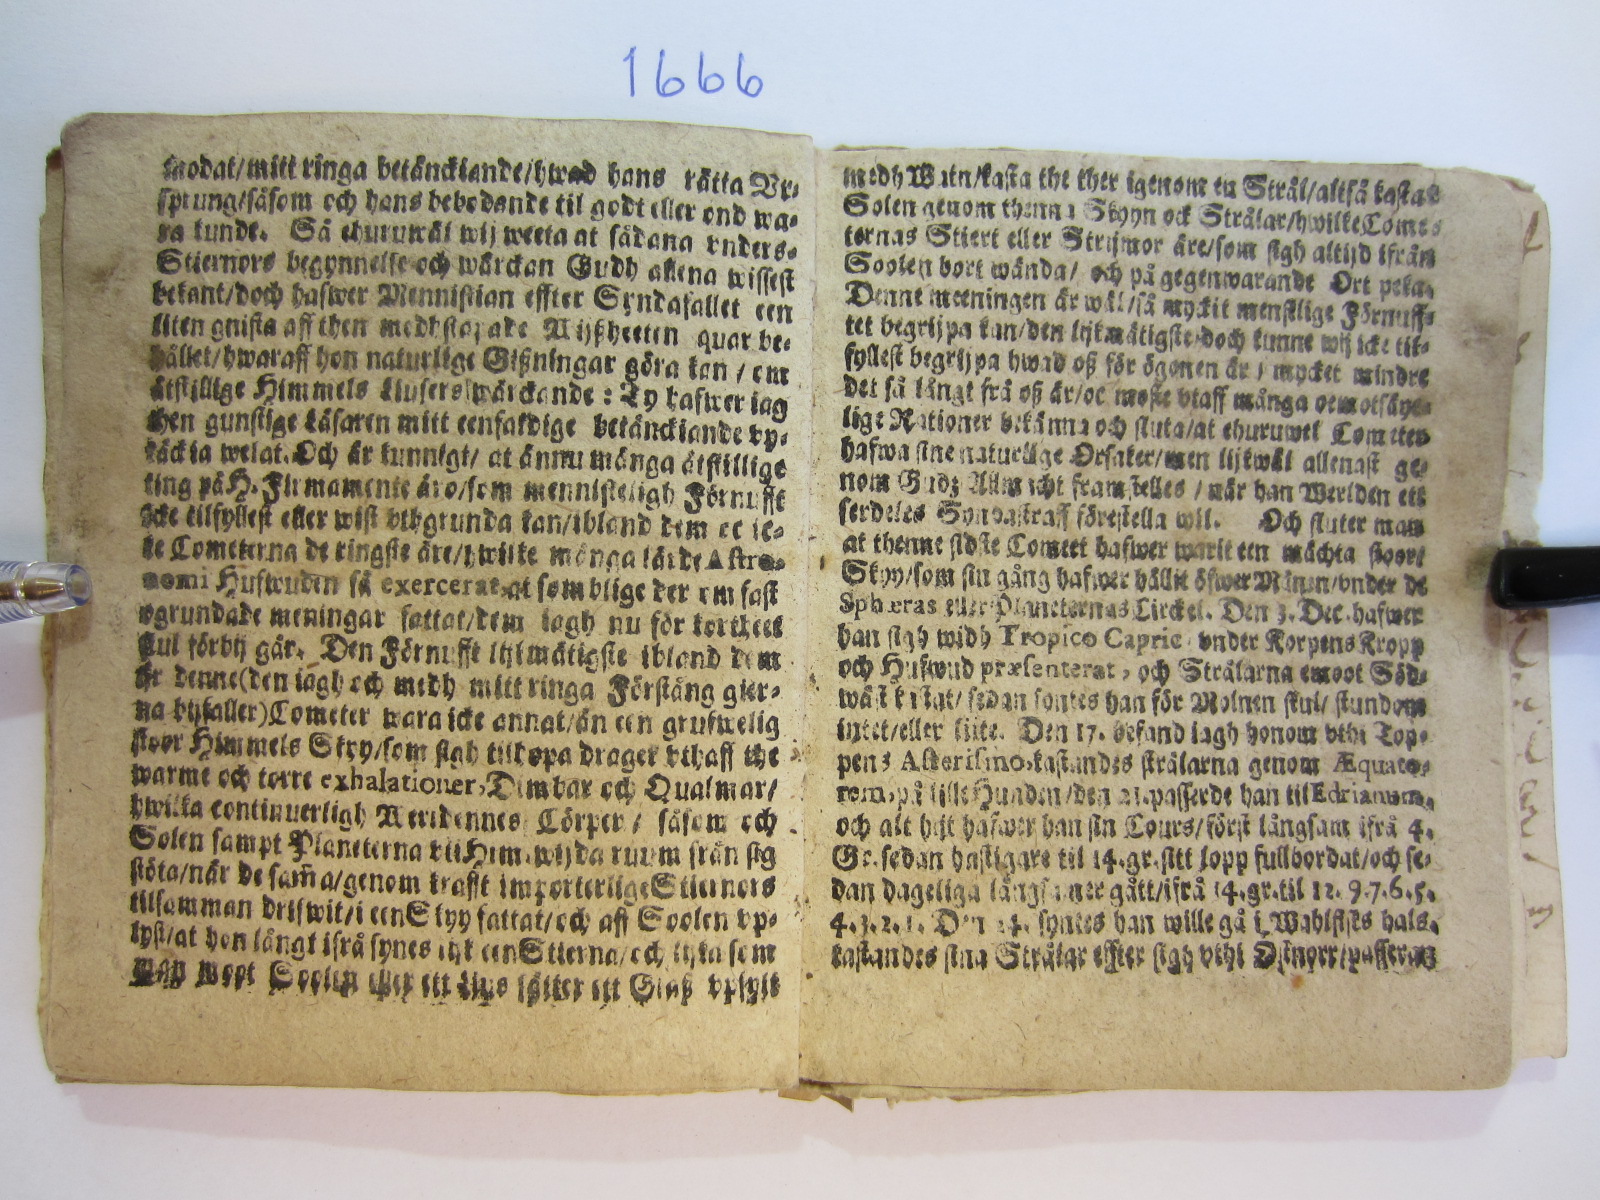 1666
modat/mitt ringa betänckiande/hwad hans rätta Vr-
sprung/såsom och hans bebodande til godt eller ond wa-
ra kunde. Så ehuruwäl wij weeta at sådana vnders-
Stiernors begynnelse och wärckan Gudh allena wissest
bekant/doch hafwer Menniskian effter Syndafallet een
liten gnista aff then medhskapade Wijßheeten quar be-
hållet/hwaraff hon naturlige Gißningar göra kan/om
åtskillige Himmels Liusers wärckande: Ty hafwer iag
then gunstige Läsaren mitt eenfaldige betänckiande vp-
täckia welat. Och är kunnigt/ at ännu många åtskillige
ting på H. Firmamente äro/som menniskeligh Förnufft
icke tilfyllest eller wist vthgrunda kan/ibland dem ec ic-
ke Cometerna de ringste äre/hwilke många lärde Astro-
nomi Hufwuden så exercerat at somblige der om fast
ogrundade meningar fattat/dem iagh nu för korthees
skul förbij går. Den Förnufft lijkmätigste ibland dem
är denne(den iagh och medh mitt ringa Förstång gier-
na bijfaller)Cometer wara icke annat/än een grufwelig
stoor Himmels Skyy/som sigh tilhopa drager vthaff the
warme och torre exhalationer, Dimbar och Qualmar/
hwilka continuerligh Weridennes Cörper/ såsom och
Solen sampt Planeterna vti Him. wijda ruum från sig
stöta/när de sam̃a/genom krafft importerlige Stiernors
tilsamman drifwit/i een Skyy fattat/och aff Soolen vp-
lyst/at hon långt ifrå synes lijk een Stierna/och lijka som
når moot Soolen eller ett Lius sätter ett Glaß vpfylt
medh Watn/kasta the ther igenom en Strål/altså kastar
Solen genom thenna Skyyn ock Strålar/hwilke Come-
ternas Stiert eller Strijmor äre/som sigh altijd ifrån
Soolen bort wända/ och på gegenwarande Ort peka.
Denne meeningen är wäl/så myckit menslige Förnuff-
tet begrijpa kan/den lijkmätigste/doch kunne wij icke til-
fyllest begrijpa hwad oß för ögonen är/ mycket mindre
det så långt frå oß är/oc moste vtaff många oemotsäye-
lige Rationer bekänna och sluta/at ehuruwel Cometen
hafwa sine naturlige Orsaker/men lijkwäl allenast ge-
nom Gudz Allmacht framstelles / när han Werlden ett
serdeles Syndastraff förestella wil. Och sluter man
at thenne sidste Comeet hafwer warit een mächta stoort
Skyy/som sin gång hafwer hållit öfwer Månen/vnder de
Sphæras eller Planeternas Circkel. Den 3. Dec. hafwer
han sigh widh Tropico Capric. vnder Korpens Kropp
och Hufwud præsenterat, och Strålarna emoot Söd-
wäst kastat/ sedan syntes han för Molnen skul/ stundom
intet/eller lijte. Den 17. befand iagh honom vthi Top-
pens Asterismo, kastandes strålarna genom Æquato-
rem, på lille Hunden/den 21. passerde han til Edrianum,
och alt hijt hafwer han sin Cours/först långsam ifrå 4.
Gr. sedan hastigare til 14. gr. sitt lopp fullbordat/och se-
dan dageliga långsamer gått/ifrå 14. gr. til 12. 9. 7. 6. 5.
4. 3. 2. 1. Den 24. syntes han wille gå i Wahlfisks hals.
kastandes sina Strålar effter sigh vthi Osnorr/passerar